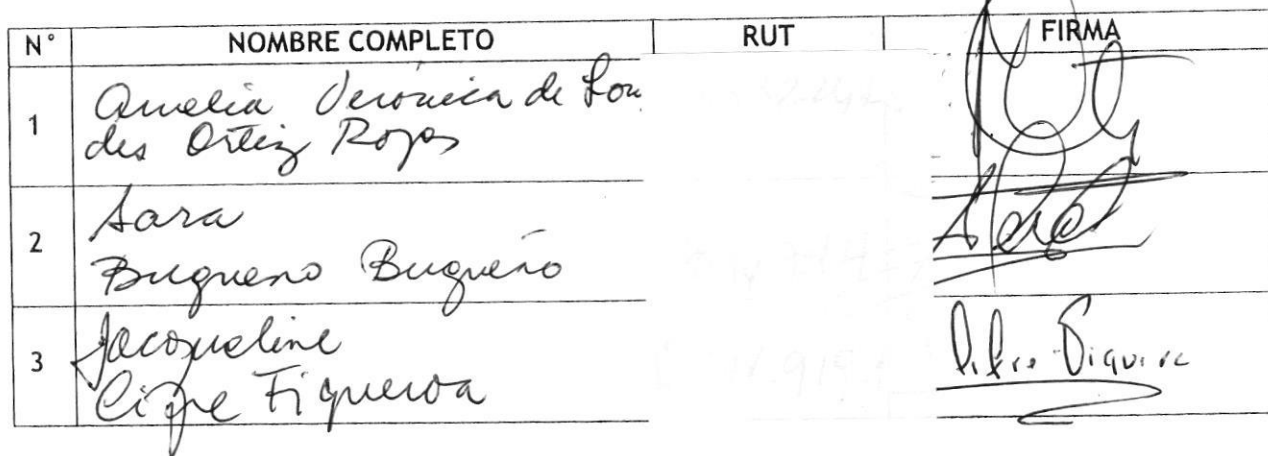 N° NOMBRE COMPLETO RUT FIRMA
1 Amelia Verónica de Lou
des Ortiz Rojas
2 Sara
Bugueno Bugueño
3 Jacqueline
Figueroa